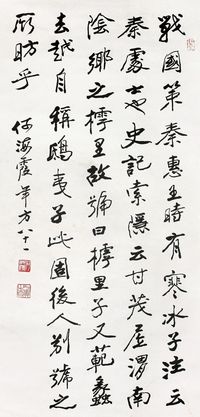 戰國策秦惠王時有寒冰子注云
秦處士也史記索隱云甘茂居渭南
陰鄉之樗里故號曰樗里子又範蠡
去越自稱鴟夷子此固後人别號之
所昉乎
何海霞年方八十一